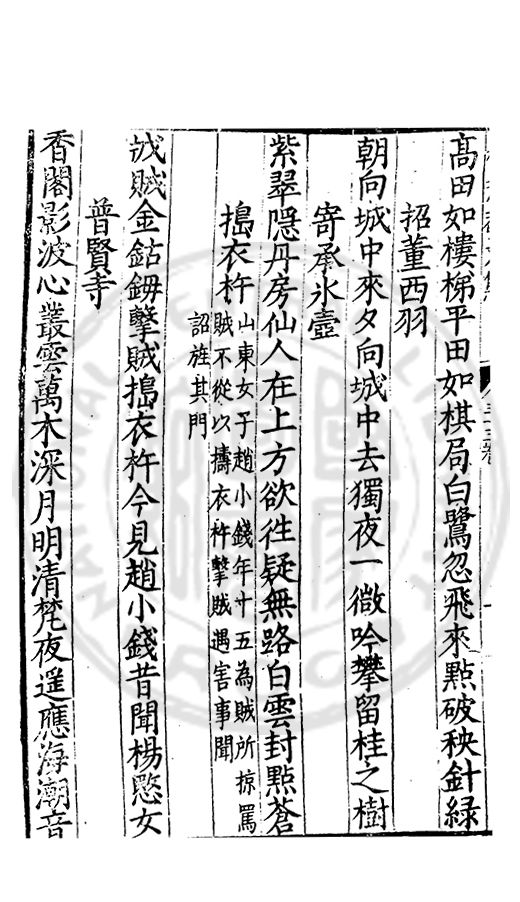 高田如樓梯平田如棋局白鷺忽飛來點破秧針緑
招董西羽
朝向城中來夕向城中去獨夜一微吟攀留桂之樹
寄承氷壺
紫翠隱丹房仙人在上方欲徃疑無路白雲封點蒼
搗衣杵
山東女子趙小錢年十五為賊所掠罵
賊不從以擣衣杵擊賊遇害事聞
詔旌其門
賊金鈷鉧擊賊搗衣杵今見趙小錢昔聞楊愍女
普賢寺
香閣影波心叢雲萬木深月明清梵夜遥應海潮音